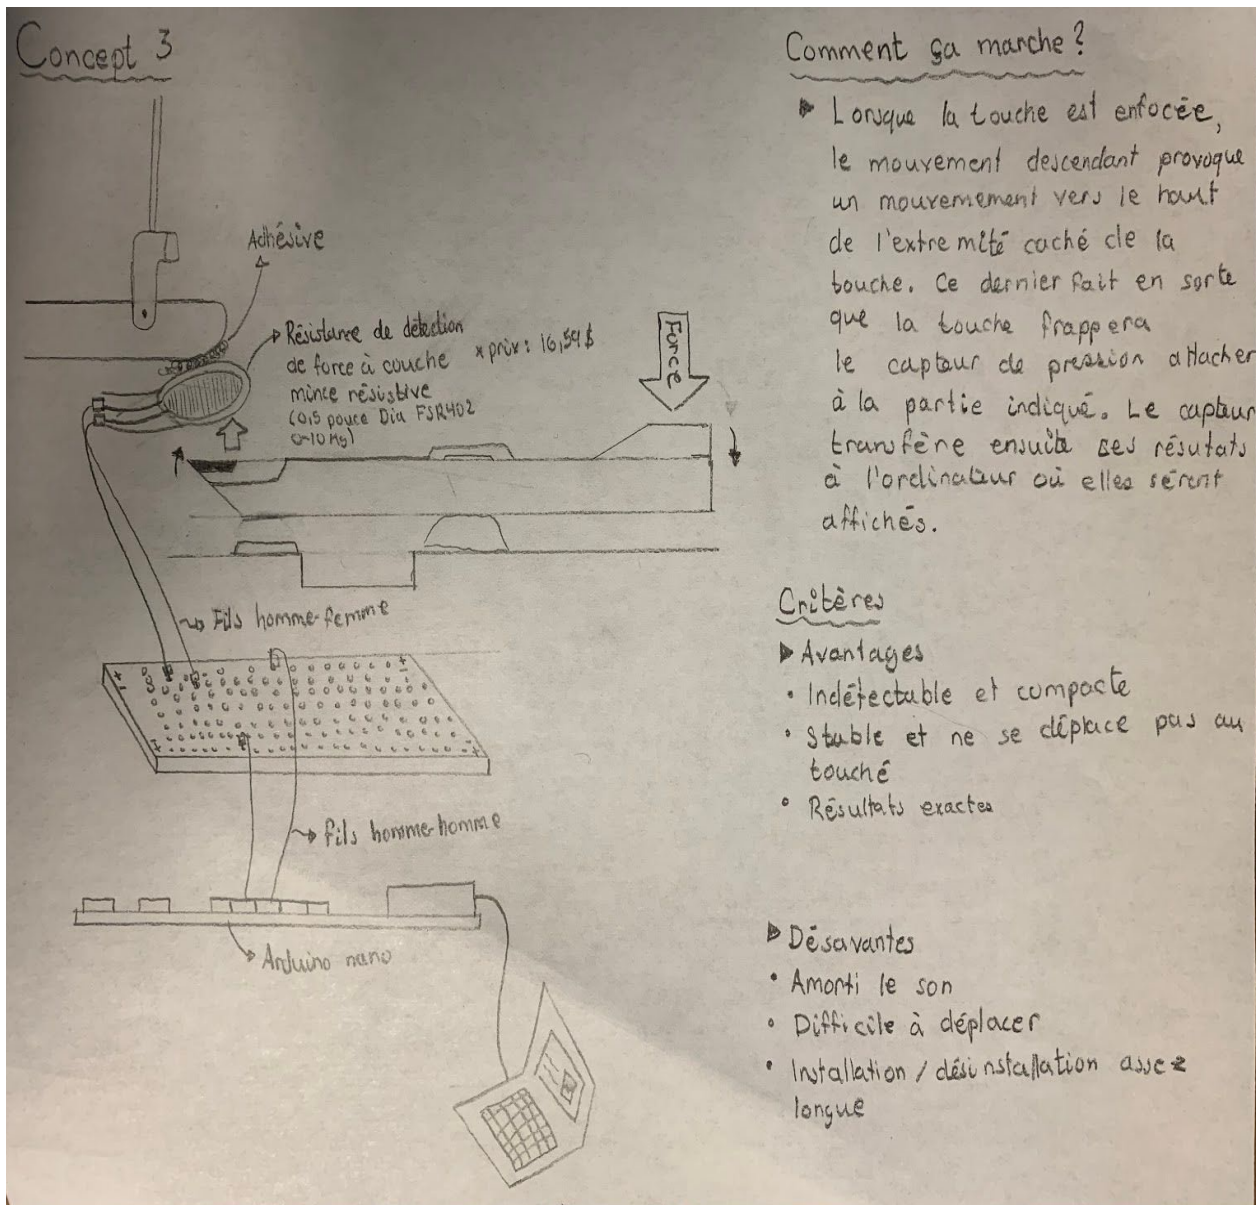 Concept 3
Adhésive
Résistance de détection
de force à couche
mince résistive
(0,5 pouce Dia FSR402
0-10 Kg)
* prix: 16,59 $
Force
Fils homme-femme
fils homme-homme
Arduino nano
Comment ça marche?
Lorsque la touche est enfocée,
le mouvement descendant provoque
un mouvemement vers le haut
de l'extremité caché de la
touche. Ce dernier fait en sorte
que la touche frappera
le capteur de pression attacher
à la partie indiqué. Le capteur
transfère ensuite ses résutats
à l'ordinateur où elles séront
affichés.
Critères
Avantages
• Indétectable et compacte
• Stable et ne se déplace pas au
touché
• Résultats exactes
Désavantes
• Amorti le son
• Difficile à déplacer
• Installation / désinstallation assez
longue